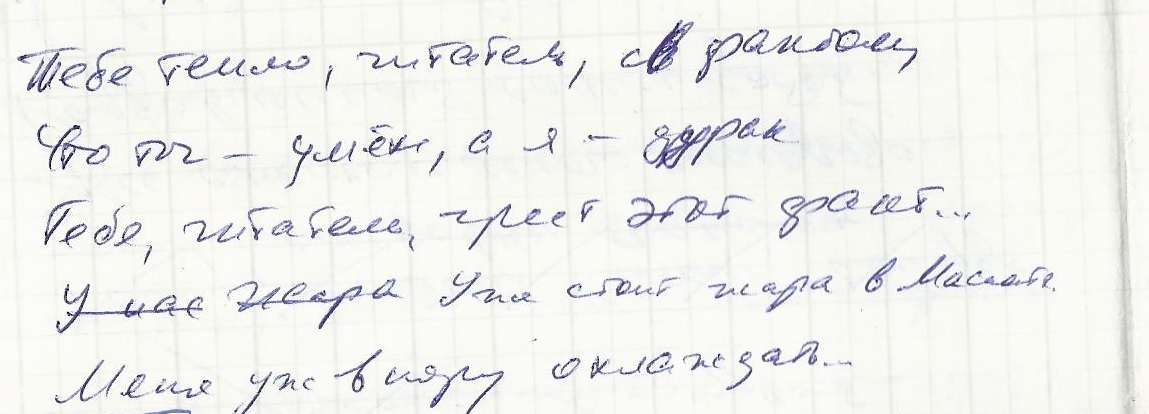 Тебе тепло, читатель, с фактом,
Что ты – умён, а я – дурак
Тебе, читатель, греет этот факт...
У нас жара Уже стоит жара в Маскате.
Меня уж впору охлаждать...